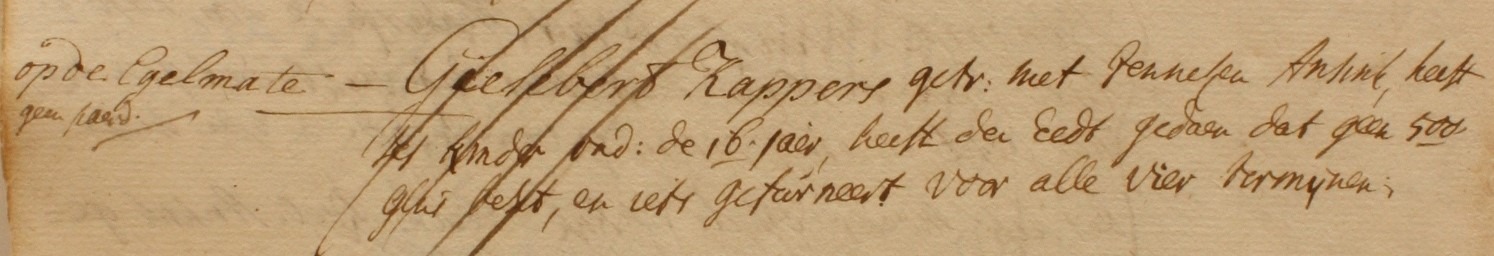 op de Egelmate — Gieselbert Kappers getr: met Jenneken Ansink, heeft
geen paerd.
ses kinder ond: de 16. jaer, heeft den Eedt gedaen dat geen 500
gl: heft, en iets gefürneert voor alle vier termijnen;